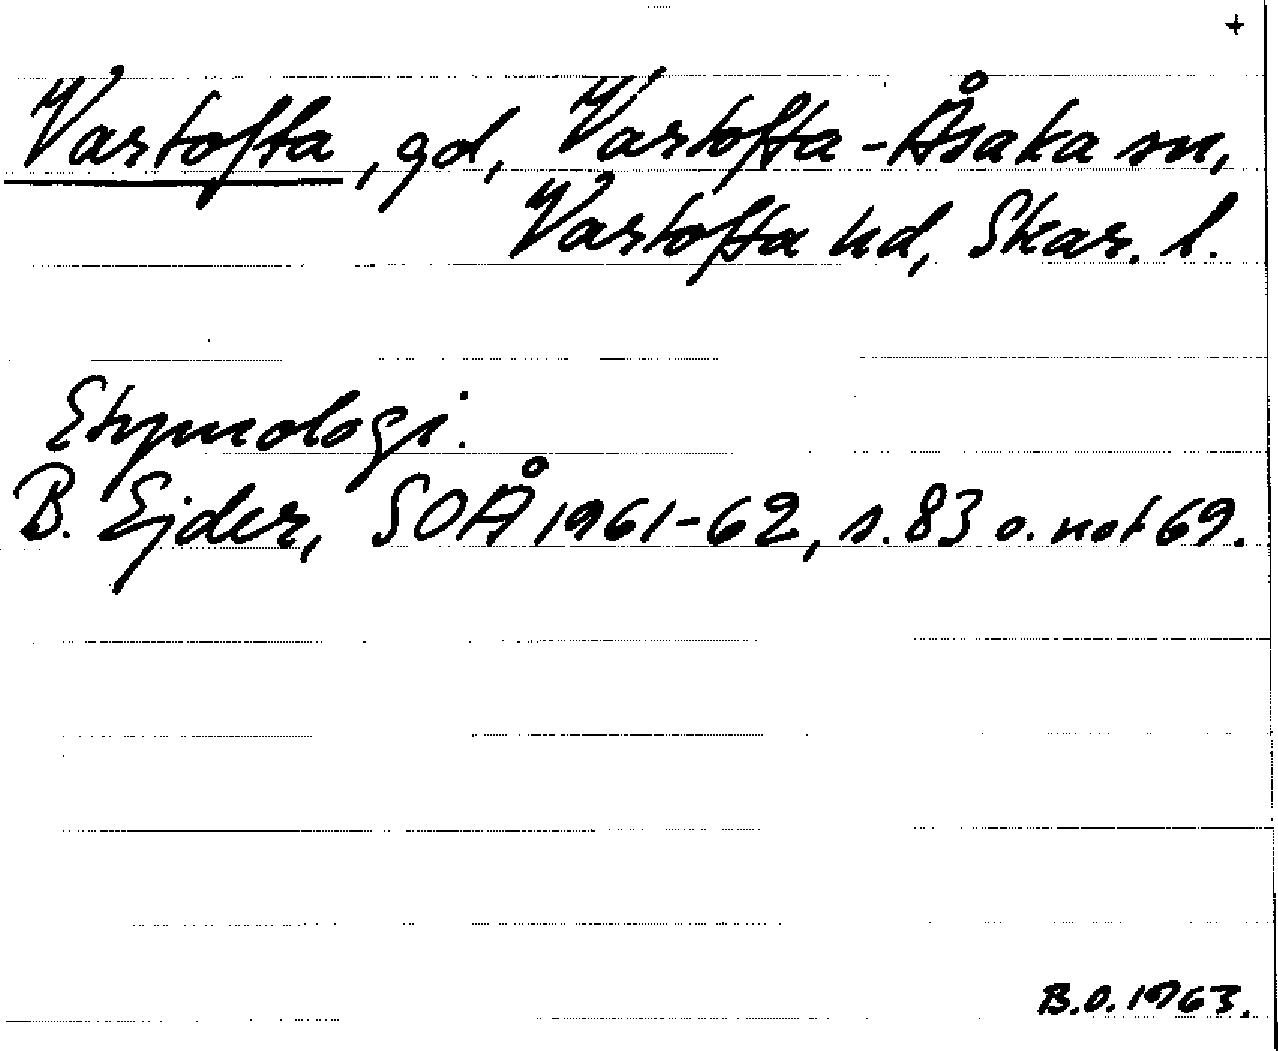 +
Vartofta, gd, Vartofta-Åsaka sn,
Vartofta hd, Skar. l.
Etymologi.
B. Ejder, SOÅ 1961-62, s. 83 o. not 69.
B.O. 1963.